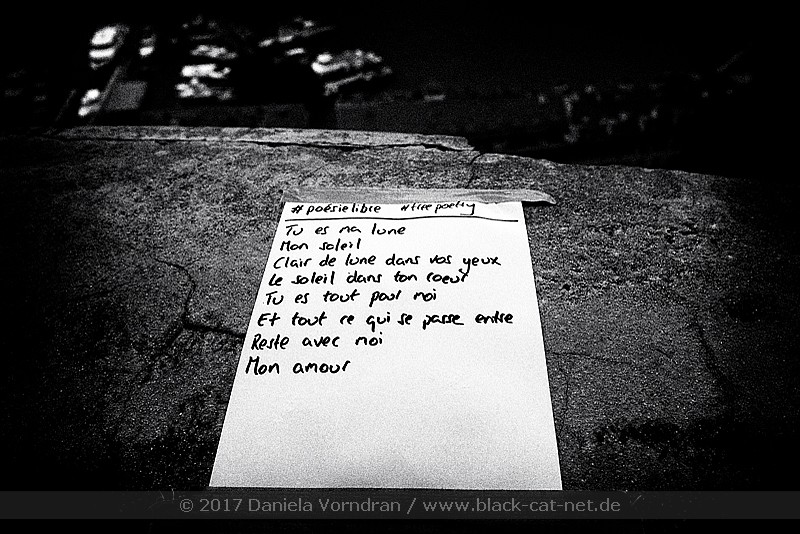 #poésielibre #freepoetry
Tu es ma lune
Mon soleil
Clair de lune dans vos yeux
Le soleil dans ton coeur
Tu es tout pour moi
Et tout ce qui se passe entre
Reste avec moi
Mon amour
© 2017 Daniela Vorndran / www.black-cat-net.de